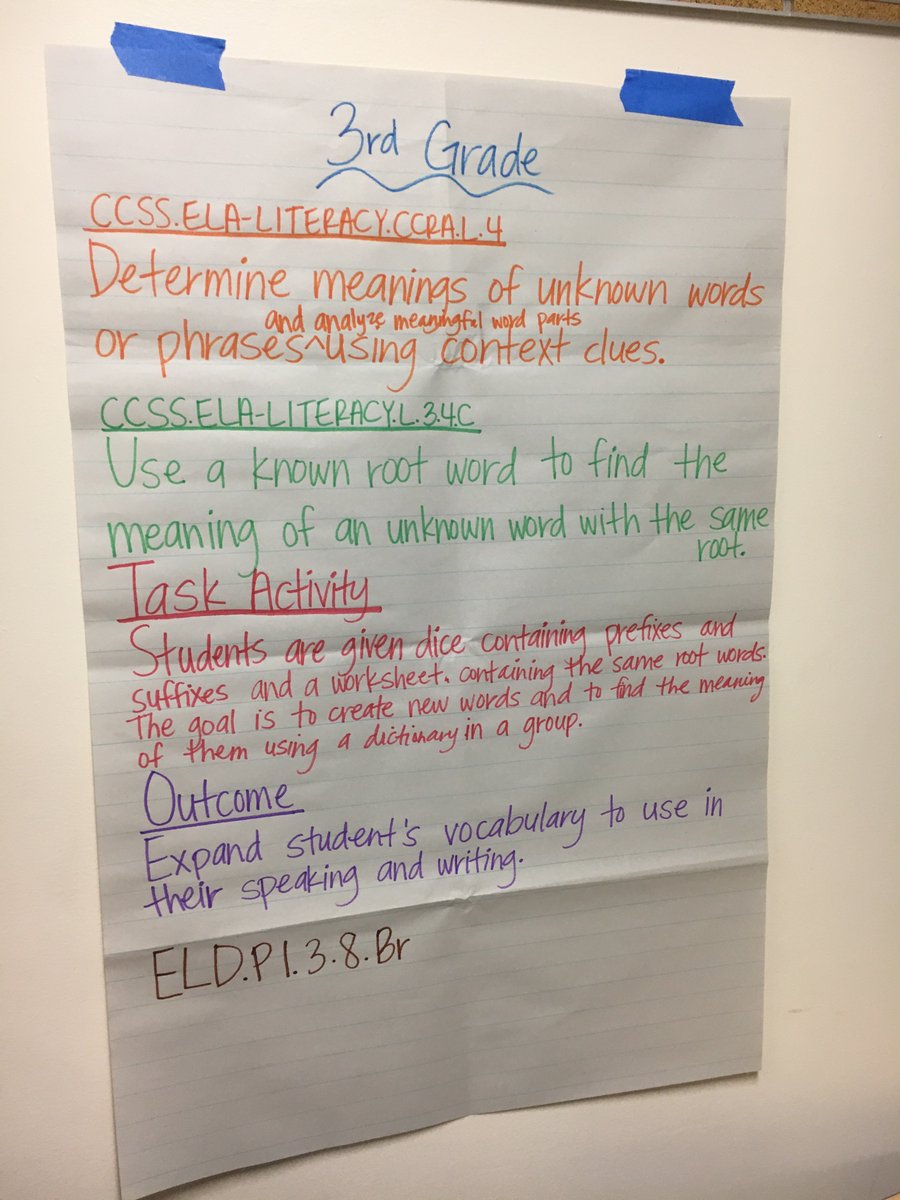 3rd Grade
CCSS.ELA-LITERACY.CCRA.L.4
Determine meanings of unknown words
and analyze meaningful word parts
or phrases ^ using context clues.
CCSS.ELA-LITERACY.L.3.4.C
Use a known root word to find the
meaning of an unknown word with the same
root.
Task Activity
Students are given dice containing prefixes and
suffixes and a worksheet. containing the same root words.
The goal is to create new words and to find the meaning
of them using a dictionary in a group.
Outcome
Expand student's vocabulary to use in
their speaking and writing.
ELD.P1.3.8.Br